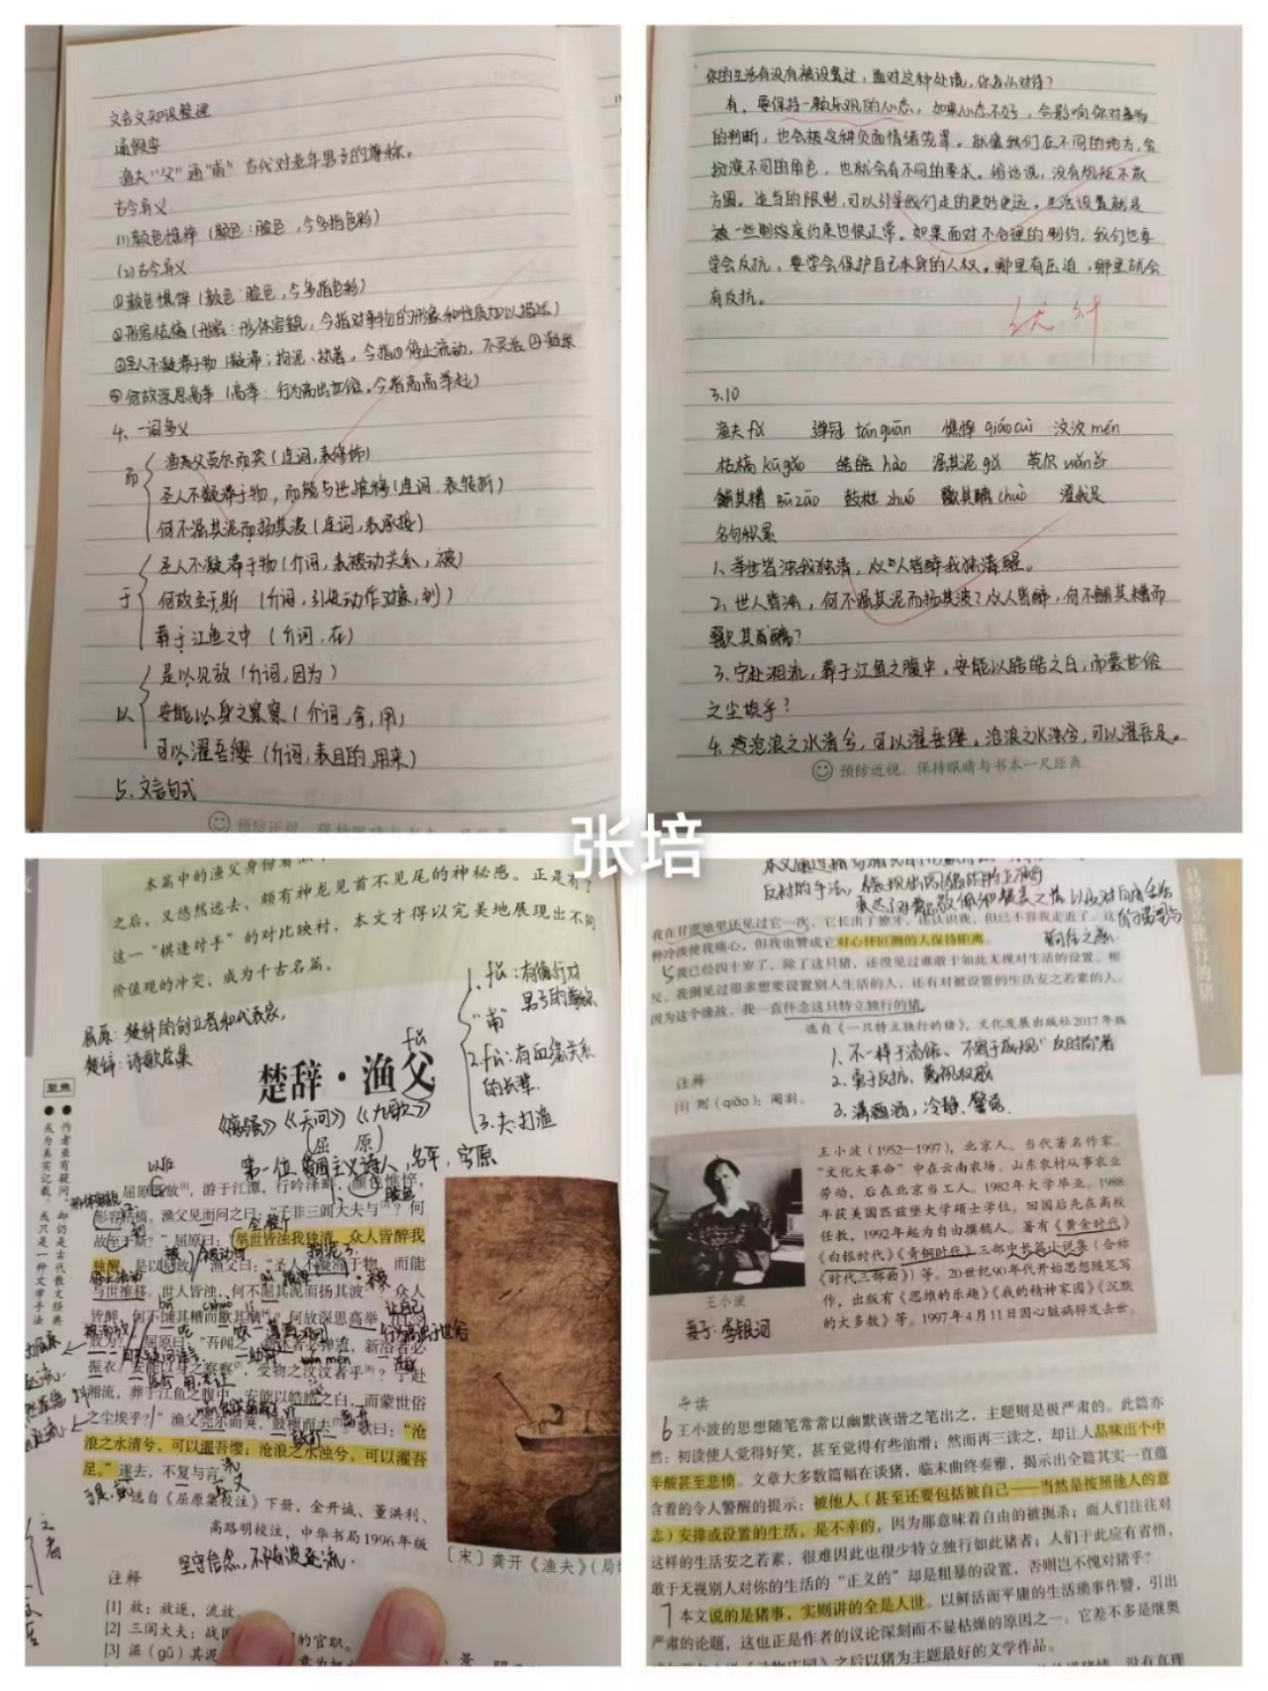 文言文知识整理
通假字
渔夫"父"通"甫" 古代对老年男子的尊称。
古今异义
(1)颜色憔悴（颜色：脸色，今多指色彩）
(2)古今异义
①颜色憔悴（颜色：脸色，今多指色彩）
②形容枯槁（形容：形体容貌，今指对事物的形象和性质加以描述）
③圣人不凝滞于物（凝滞：拘泥、执着。今指①停止流动，不灵活②凝聚
④何故深思高举（高举：行为高出世俗。今指高高举起）
4、一词多义
而
渔夫父莞尔而笑（连词，表修饰）
圣人不凝滞于物，而能与世推移（连词，表转折）
何不淈其泥而扬其波（连词，表承接）
于
圣人不凝滞于物（介词，表被动关系，被）
何故至于斯 （介词，引进动作对象，到）
葬于江鱼之中（介词，在）
以
是以见放（介词，因为）
安能以身之察察（介词，拿，用）
可以濯吾缨（介词，表目的，用来）
5、文言句式
你的生活有没有被设置过，面对这种处境，你怎么对待？
有，要保持一颗乐观的心态，如果心态不好，会影响你对事物
的判断，也会被这种负面情绪笼罩。就像我们在不同的地方，会
扮演不同的角色，也就会有不同的要求。俗话说，没有规矩不成
方圆。适当的限制，可以引导我们走的更好更远。生活设置就是
被一些制度约束也很正常。如果面对不合理的制约，我们也要
学会反抗，要学会保护自己本身的人权。哪里有压迫，哪里就会
有反抗。
3.10
渔夫 fǔ 弹冠 tán guān 憔悴 qiáo cuì 汶汶 mén
枯槁 kū gǎo 皓皓 hào 淈其泥 gǔ 莞尔 wǎn ěr
餔其糟 bū zāo 鼓枻 歠其醨 chuò 濯我足
名句积累
1、举世皆浊我独清，众人皆醉我独清醒。
2、世人皆浊，何不淈其泥而扬其波？众人皆醉，何不餔其糟而
歠其醨？
3、宁赴湘流，葬于江鱼之腹中。安能以皓皓之白，而蒙世俗
之尘埃乎？
4、沧浪之水清兮，可以濯吾缨。沧浪之水浊兮，可以濯吾足。
预防近视，保持眼睛与书本一尺距离
张培
本篇中的渔父身份
之后，又悠然远去，颇有神龙见首不见尾的神秘感。正是有了
这一"棋逢对手"的对比映衬，本文才得以完美地展现出不同
价值观的冲突，成为千古名篇。
屈原：楚辞的创立者和代表家，
楚辞：诗歌总集
1. fǔ：有德行对
男子的尊称
"甫"
2. fù：有血缘关系
的长辈.
3. 夫：打渔
fǔ
楚辞·渔父
《离骚》《天问》《九歌》
（屈 原）
第一位爱国主义诗人，名平，字原
聚焦
● 作者最有疑问、却仍是古代散文经典
● 成为真实记载，或只是一种文学手法
屈原既放[1]，游于江潭，行吟泽畔，颜色憔悴，
形容枯槁。渔父见而问之曰："子非三闾大夫与[2]？何
故至于斯？"屈原曰："举世皆浊我独清，众人皆醉我
独醒，是以见放。"渔父曰："圣人不凝滞于物，而能
与世推移。世人皆浊，何不淈其泥而扬其波[3]？众人
皆醉，何不餔其糟而歠其醨[4]？何故深思高举，
放为？"屈原曰："吾闻之，新沐者必弹冠，新浴者必
振衣。安能以身之察察，受物之汶汶者乎？宁赴
湘流，葬于江鱼之腹中。安能以皓皓之白，而蒙世俗
之尘埃乎？"渔父莞尔而笑，鼓枻而去。歌曰："沧
浪之水清兮，可以濯吾缨；沧浪之水浊兮，可以濯吾
足。"遂去，不复与言。
选自《屈原集校注》下册，金开诚、董洪利、
高路明校注，中华书局1996年版
坚守信念，不随波逐流.
［宋］龚开《渔夫》（局
注释
[1] 放：放逐，流放。
[2] 三闾大夫：战国 的官职。
[3] 淈（gǔ）其泥
我在甘蔗地里还见过它一次，它长出了獠牙，还认识我，但已不容我走近了。这
种冷淡使我痛心，但我也赞成它对心怀叵测的人保持距离。
5 我已经四十岁了，除了这只猪，还没见过谁敢于如此无视对生活的设置。相
反，我倒见过很多想要设置别人生活的人，还有对被设置的生活安之若素的人。
因为这个缘故，我一直怀念这只特立独行的猪。
选自《一只特立独行的猪》，文化发展出版社2017年版
1. 不一样于流俗、不囿于成规"
2. 勇于反抗、蔑视权威
3. 潇洒，冷静、警觉.
注释
[1] 劁（qiāo）：阉割。
王小波（1952—1997），北京人。当代著名作家。
"文化大革命"中在云南农场、山东农村从事农业
劳动，后在北京当工人。1982年大学毕业。1988
年获美国匹兹堡大学硕士学位。回国后先在高校
任教，1992年起为自由撰稿人。著有《黄金时代》
《白银时代》《青铜时代》三部中长篇小说集（合称
《时代三部曲》）等。20世纪90年代开始思想随笔写
作，出版有《思维的乐趣》《我的精神家园》《沉默
的大多数》等。1997年4月11日因心脏病猝发去世。
王小波
妻子：李银河
导读
6 王小波的思想随笔常常以幽默诙谐之笔出之，主题则是很严肃的。此篇亦
然：初读使人觉得好笑，甚至觉得有些油滑；然而再三读之，却让人品味出个中
辛酸甚至悲愤。文章大多数篇幅在谈猪，临末曲终奏雅，揭示出全篇其实一直蕴
含着的令人警醒的提示：被他人（甚至还要包括被自己——当然是按照他人的意
志）安排或设置的生活，是不幸的，因为那意味着自由的被扼杀；而人们往往对
这样的生活安之若素，很难因此也很少特立独行如此猪者；人们于此应有省悟，
敢于无视别人对你的生活的"正义的"却是粗暴的设置，否则岂不愧对猪乎？
7 本文说的是猪事，实则讲的全是人世。以鲜活而平庸的生活琐事作譬，引出
严肃的论题，这也正是作者的议论深刻而不显枯燥的原因之一。它差不多是继奥
之后以猪为主题最好的文学作品。